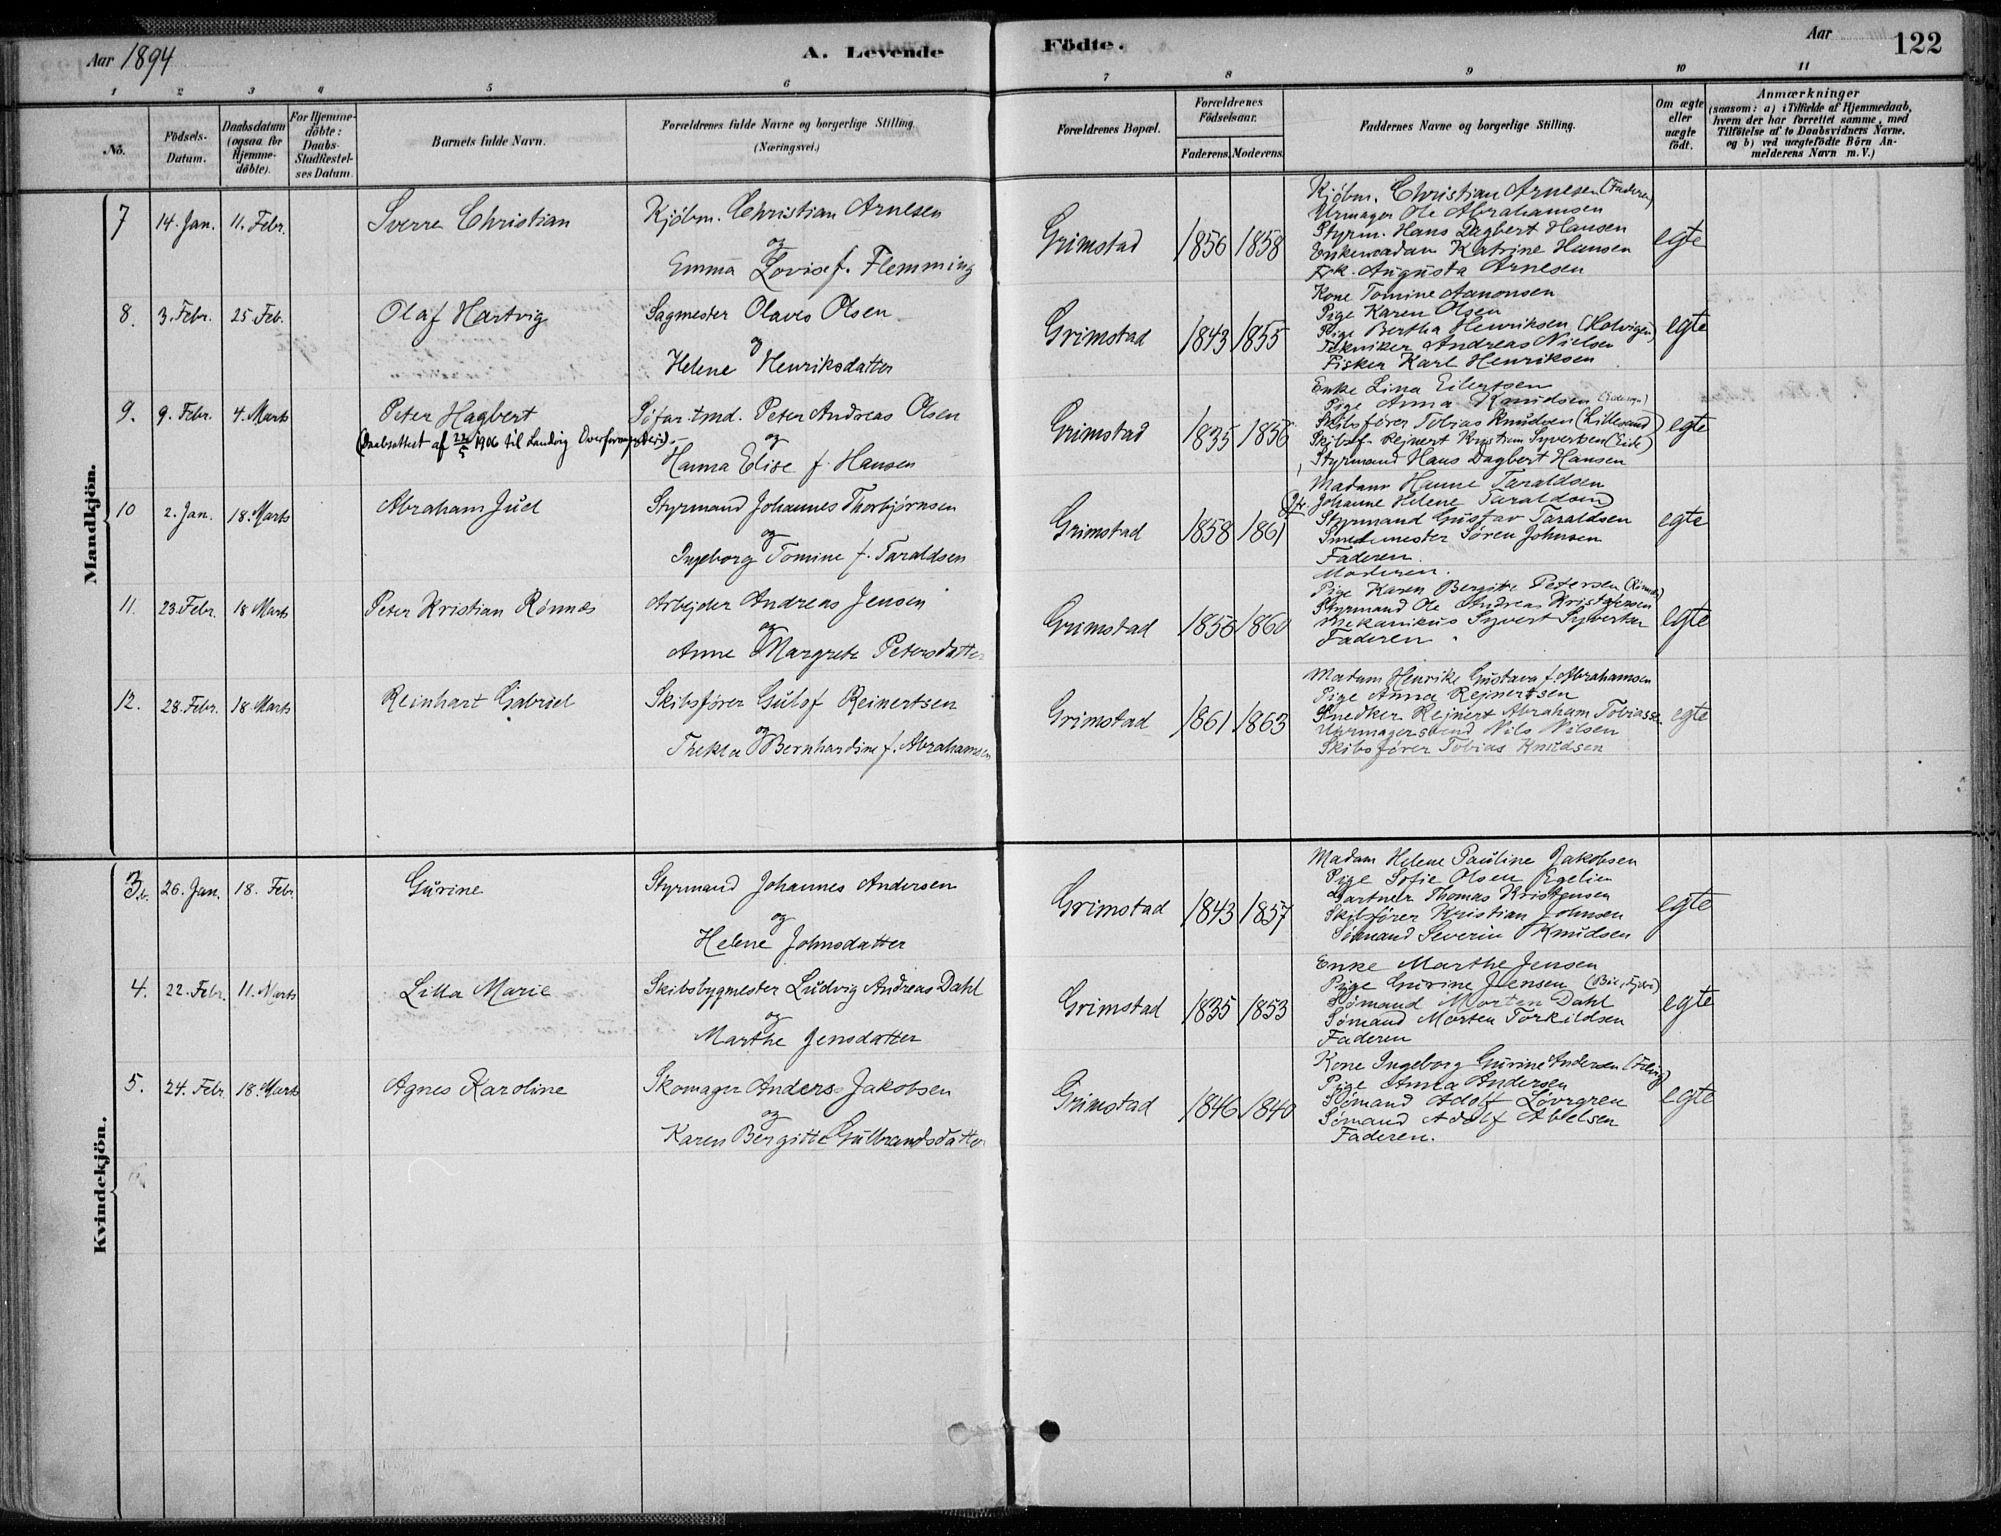 Aar 1894
A. Levende Födte.
Aar
122
1 2 3 4 5 6 7 8 9 10 11
No.
Födsels-Datum.
Daabsdatum (ogsaa for Hjemme-döbte).
For Hjemme-döbte: Daabs-Stadfæstel-ses Datum.
Barnets fulde Navn.
Forældrenes fulde Navne og borgerlige Stilling. (Næringsvei.)
Forældrenes Bopæl.
Forældrenes Födselsaar.
Faderens. Moderens.
Faddernes Navne og borgerlige Stilling.
Om ægte eller uægte födt.
Anmærkninger (saasom: a) i Tilfælde af Hjemmedaab, hvem der har forrettet samme, med Tilföielse af to Daabsvidners Navne. og b) ved uægtefödte Börn Anmelderens Navn m. V.)
Mandkjön.
7 14. Jan. 11. Febr. Sverre Christian
Kjöbm. Christian Arnesen
og
Emma Lovise f. Flemming
Grimstad 1856 1858
Kjöbm. Christian Arnesen (Faderen)
Urmager Ole Abrahamsen
Styrm. Hans Dagbert Hansen
Enkemadam Katrine Hansen
Frk. Augusta Arnesen
egte
8. 3. Febr. 25 Feb. Olaf Hartvig
Sagmester Olaves Olsen
og
Helene Henriksdatter
Grimstad 1843 1855
Kone Tomine Aanonsen
Pige Karen Olsen
Pige Bertha Henriksen (Holvigen)
Tekniker Andreas Nielsen
Fisker Karl Henriksen
egte
9. 9. Febr. 4. Marts Peter Hagbert
(Daabsattest af 22/5 1906 til Landvig Overformynderi).
Söfartsmd. Peter Andreas Olsen
og
Hanna Elise f. Hansen
Grimstad 1835 1856
Enke Lina Eilertsen
Pige Anna Knudsen
Skibsfører Tobias Knudsen (Lillesand)
Skibsf. Rejnert Kristian Syvertsen (Eide)
Styrmand Hans Dagbert Hansen
egte
10 2. Jan. 18. Marts Abraham Juel
Styrmand Johannes Thorbjørnsen
og
Ingeborg Tomine f. Taraldsen
Grimstad 1858 1861
Madam Hanne Taraldsen
Johanne Helene Taraldsen
Styrmand Gustav Taraldsen
Smedemester Søren Johnsen
Faderen
Moderen.
egte
11. 23. Febr. 18 Marts Peter Kristian Rønnes
Arbejder Andreas Jensen
og
Anne Margrete Petersdatter
Grimstad 1856 1860
Pige Karen Bergitte Petersen (Rønnes)
Styrmand Ole Andreas Kristensen
Mekanikus Syvert Syvertsen
Faderen
egte
12. 28. Febr. 18 Marts Reinhart Gabriel
Skibsfører Gulof Reinertsen
og
Thekla Bernhardine f. Abrahamsen
Grimstad 1861 1863
Madam Henrike Gustava f. Abrahamsen
Pige Anna Rejnertsen
Snedker Rejnert Abraham Tobiassen
Uhrmagersvend Nils Nilsen
Skibsfører Tobias Knudsen
egte
Kvindekjön.
3. 26. Jan. 18. Febr. Gurine
Styrmand Johannes Andersen
og
Helene Johnsdatter
Grimstad 1843 1857
Madam Helene Pauline Jakobsen
Pige Sofie Olsen Egelien
Gartner Thomas Kristensen
Skibsfører Kristian Johnsen
Sømand Severin Knudsen
egte
4. 22. Febr. 11. Marts Lilla Marie
Skibsbygmester Ludvig Andreas Dahl
og
Marthe Jensdatter
Grimstad 1835 1853
Enke Marthe Jensen
Pige Gurine Jensen
Sømand Morten Dahl
Sømand Morten Torkildsen
Faderen
egte
5. 24. Febr. 18. Marts Agnes Karoline
Skomager Anders Jakobsen
og
Karen Bergitte Gulbrandsdatter
Grimstad 1846 1840
Kone Ingeborg Gurine Andersen
Pige Anna Andersen
Sømand Adolf Løvgren
Sømand Adolf Abelsen
Faderen.
egte